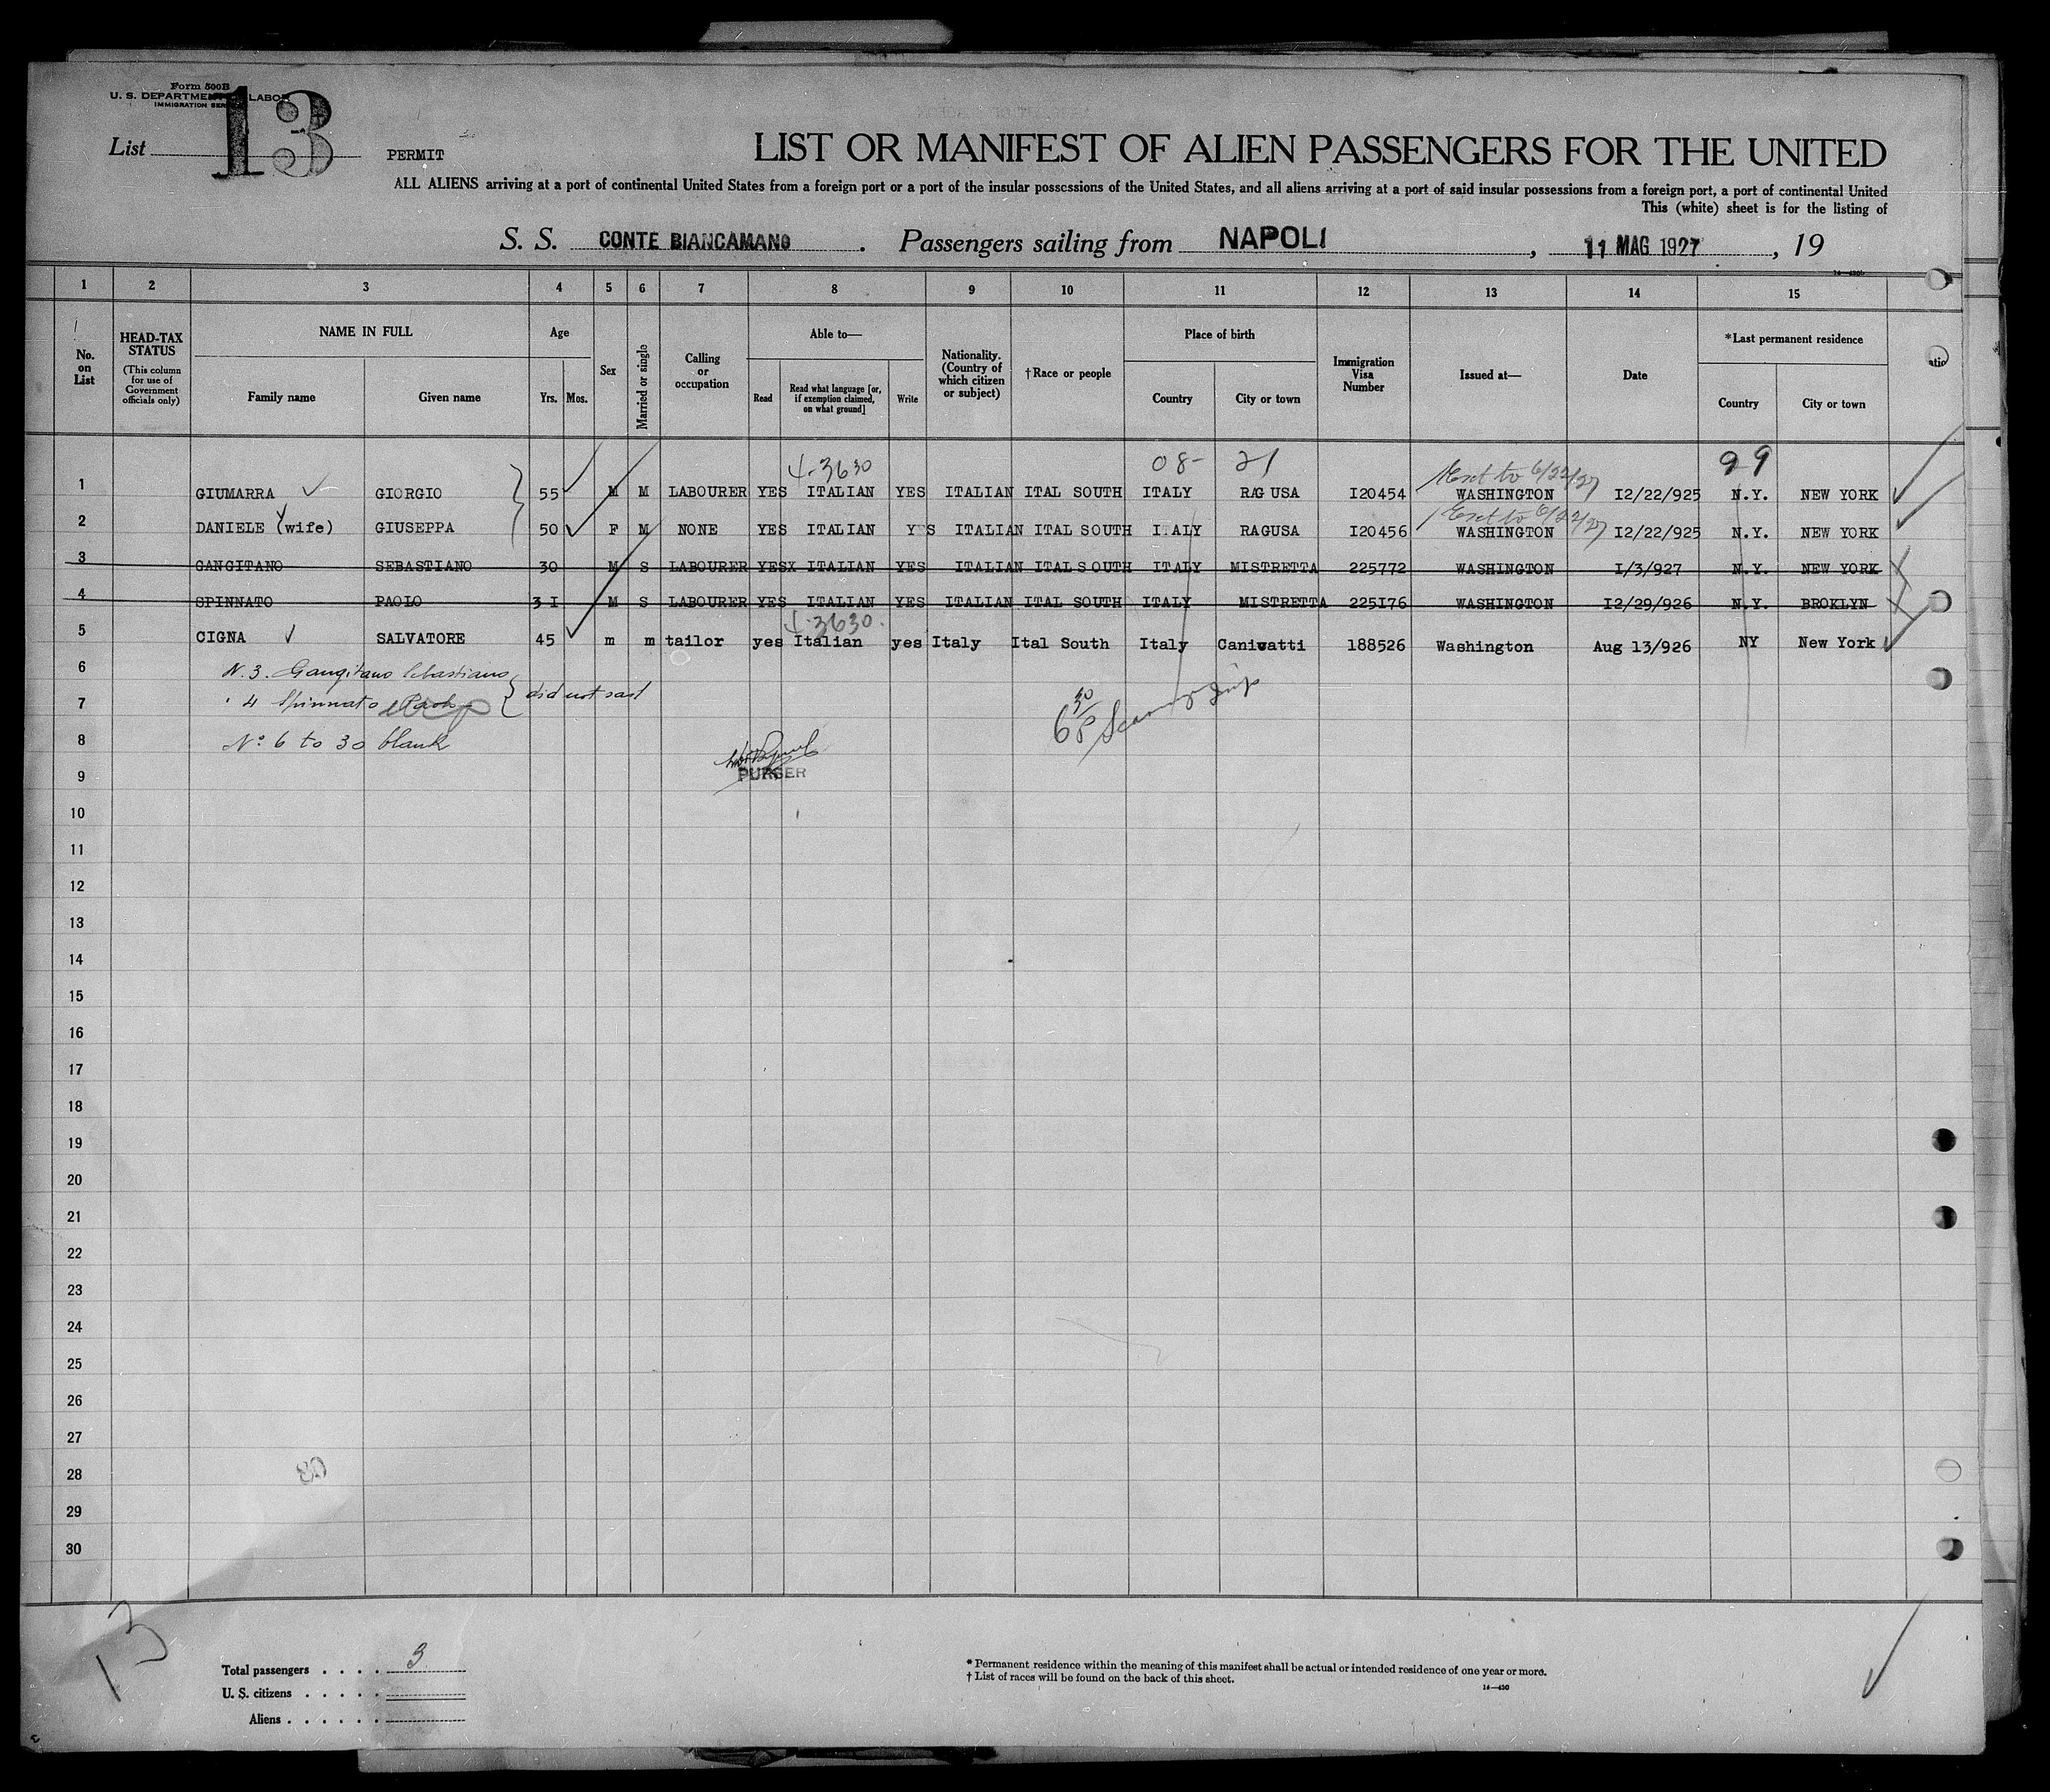 Form 500B
U. S. DEPARTMENT LABOR
IMMIGRATION SER
List 13
PERMIT
LIST OR MANIFEST OF ALIEN PASSENGERS FOR THE UNITED
ALL ALIENS arriving at a port of continental United States from a foreign port or a port of the insular possessions of the United States, and all aliens arriving at a port of said insular possessions from a foreign port, a port of continental United
This (white) sheet is for the listing of
S. S. CONTE BIANCAMANO . Passengers sailing from NAPOLI , 11 MAG 1927 , 19
1 2 3 4 5 6 7 8 9 10 11 12 13 14 15
No. on List
HEAD-TAX STATUS (This column for use of Government officials only)
NAME IN FULL Family name Given name
Age Yrs. Mos.
Sex
Married or single
Calling or occupation
Able to— Read Read what language [or, if exemption claimed, on what ground] Write
Nationality. (Country of which citizen or subject)
†Race or people
Place of birth Country City or town
Immigration Visa Number
Issued at—
Date
*Last permanent residence Country City or town
3630 08- 21 99
Ext to 6/22/27
1 GIUMARRA GIORGIO 55 M M LABOURER YES ITALIAN YES ITALIAN ITAL SOUTH ITALY RAGUSA I20454 WASHINGTON I2/22/925 N.Y. NEW YORK
Ext to 6/22/27
2 DANIELE (wife) GIUSEPPA 50 F M NONE YES ITALIAN YES ITALIAN ITAL SOUTH ITALY RAGUSA I20456 WASHINGTON I2/22/925 N.Y. NEW YORK
3 GANGITANO SEBASTIANO 30 M S LABOURER YESX ITALIAN YES ITALIAN ITAL SOUTH ITALY MISTRETTA 225772 WASHINGTON I/3/927 N.Y. NEW YORK
4 SPINNATO PAOLO 3I M S LABOURER YES ITALIAN YES ITALIAN ITAL SOUTH ITALY MISTRETTA 225I76 WASHINGTON I2/29/926 N.Y. BROKLYN
3630
5 CIGNA SALVATORE 45 m m tailor yes Italian yes Italy Ital South Italy Canicatti 188526 Washington Aug 13/926 NY New York
6 N. 3. Gangitano Sebastiano
7 " 4 Spinnato Paolo } did not sail
8 No 6 to 30 blank
PURSER
9
10
11
12
13
14
15
16
17
18
19
20
21
22
23
24
25
26
27
28
29
30
13
Total passengers . . . . 3
U. S. citizens . . . . .
Aliens . . . . . .
* Permanent residence within the meaning of this manifest shall be actual or intended residence of one year or more.
† List of races will be found on the back of this sheet.
14—430